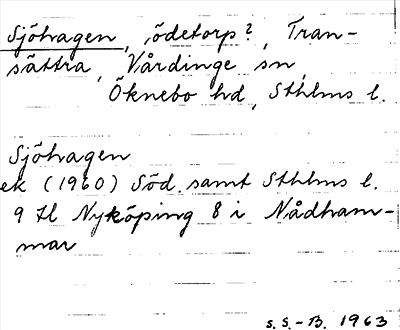 Sjöhagen, ödetorp?, Tran-
sättra, Vårdinge sn,
Öknebo hd, Sthlms l.
Sjöhagen
ek (1960) Söd. samt Sthlms l.
9 H Nyköping 8 i Nådham-
mar
S.S.-B. 1963